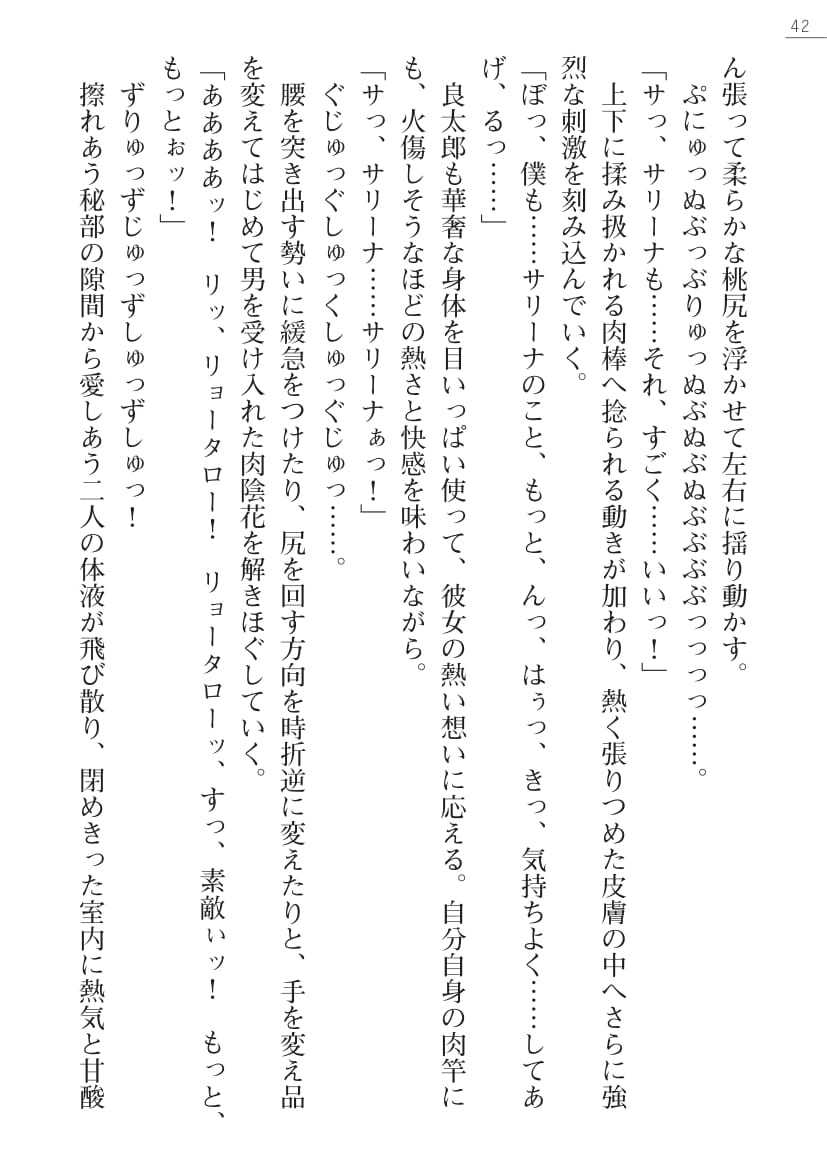 42
ん張って柔らかな桃尻を浮かせて左右に揺り動かす。
ぷにゅっぬぶっぶりゅっぬぶぬぶぬぶぶぶぶっっっっ……。
「サっ、サリーナも……それ、すごく……いいっ！」
上下に揉み扱かれる肉棒へ捻られる動きが加わり、熱く張りつめた皮膚の中へさらに強
烈な刺激を刻み込んでいく。
「ぼっ、僕も……サリーナのこと、もっと、んっ、はぅっ、きっ、気持ちよく……してあ
げ、るっ……」
良太郎も華奢な身体を目いっぱい使って、彼女の熱い想いに応える。自分自身の肉竿に
も、火傷しそうなほどの熱さと快感を味わいながら。
「サっ、サリーナ……サリーナぁっ！」
ぐじゅっぐしゅっくしゅっぐじゅっ……。
腰を突き出す勢いに緩急をつけたり、尻を回す方向を時折逆に変えたりと、手を変え品
を変えてはじめて男を受け入れた肉陰花を解きほぐしていく。
「ああああッ！　リッ、リョータロー！　リョータローッ、すっ、素敵ぃッ！　もっと、
もっとぉッ！」
ずりゅっずじゅっずしゅっずしゅっ！
擦れあう秘部の隙間から愛しあう二人の体液が飛び散り、閉めきった室内に熱気と甘酸